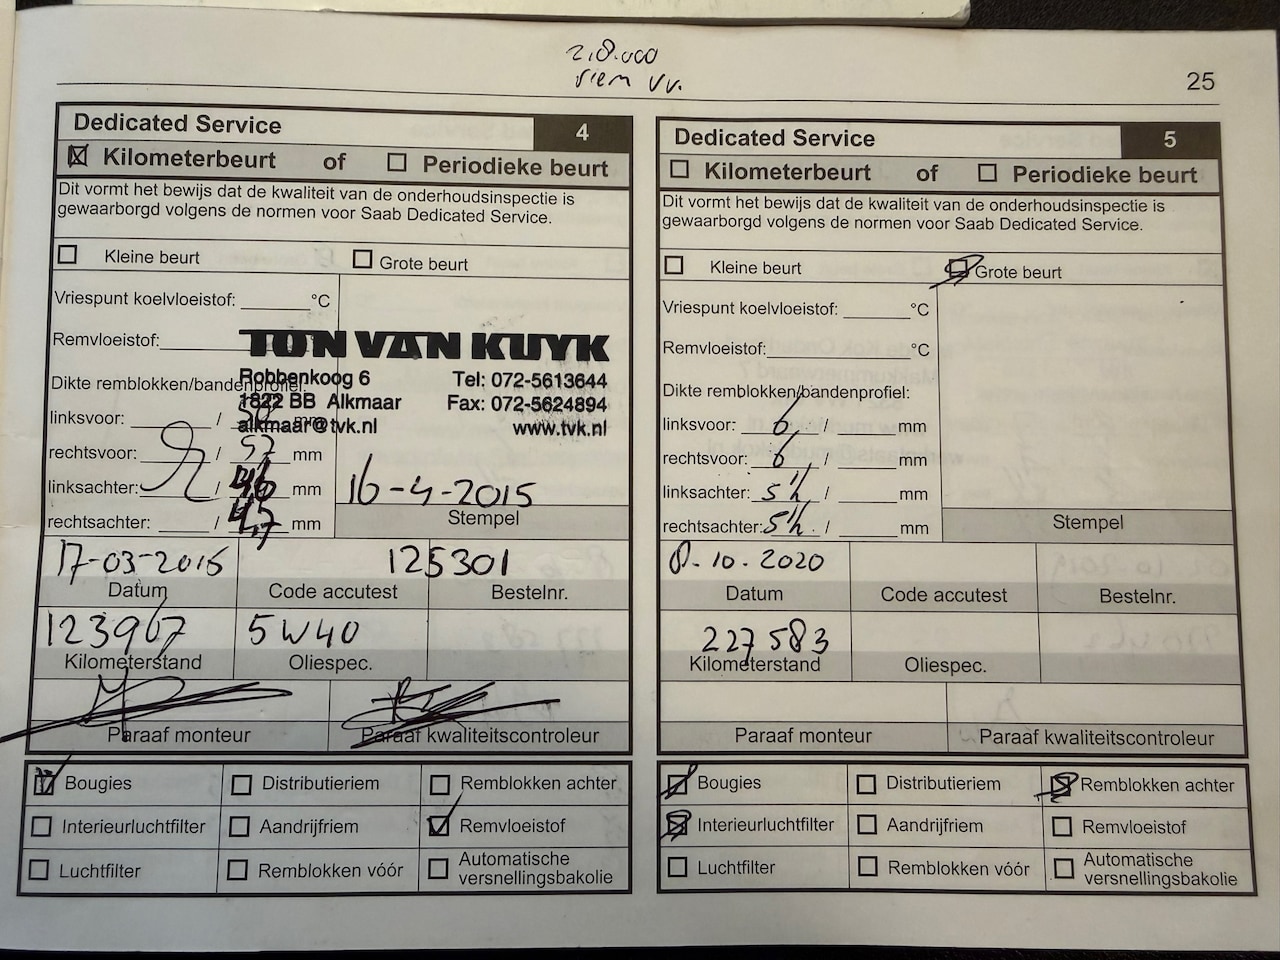 218.000
riem vv.
25
Dedicated Service 4
Kilometerbeurt of Periodieke beurt
Dit vormt het bewijs dat de kwaliteit van de onderhoudsinspectie is
gewaarborgd volgens de normen voor Saab Dedicated Service.
Kleine beurt Grote beurt
Vriespunt koelvloeistof: °C
Remvloeistof:
TON VAN KUYK
Robbenkoog 6 Tel: 072-5613644
1822 BB Alkmaar Fax: 072-5624894
alkmaar@tvk.nl www.tvk.nl
Dikte remblokken/bandenprofiel:
linksvoor: / mm
rechtsvoor: / 52 mm
linksachter: / 46 mm
rechtsachter: / 4,7 mm
16-4-2015
Stempel
17-03-2015 125301
Datum Code accutest Bestelnr.
123967 5W40
Kilometerstand Oliespec.
Paraaf monteur Paraaf kwaliteitscontroleur
Bougies Distributieriem Remblokken achter
Interieurluchtfilter Aandrijfriem Remvloeistof
Luchtfilter Remblokken vóór Automatische
versnellingsbakolie
Dedicated Service 5
Kilometerbeurt of Periodieke beurt
Dit vormt het bewijs dat de kwaliteit van de onderhoudsinspectie is
gewaarborgd volgens de normen voor Saab Dedicated Service.
Kleine beurt Grote beurt
Vriespunt koelvloeistof: °C
Remvloeistof: °C
Dikte remblokken/bandenprofiel:
linksvoor: 6 / mm
rechtsvoor: 6 / mm
linksachter: 5½ / mm
rechtsachter: 5½ / mm
Stempel
8.10.2020
Datum Code accutest Bestelnr.
227583
Kilometerstand Oliespec.
Paraaf monteur Paraaf kwaliteitscontroleur
Bougies Distributieriem Remblokken achter
Interieurluchtfilter Aandrijfriem Remvloeistof
Luchtfilter Remblokken vóór Automatische
versnellingsbakolie